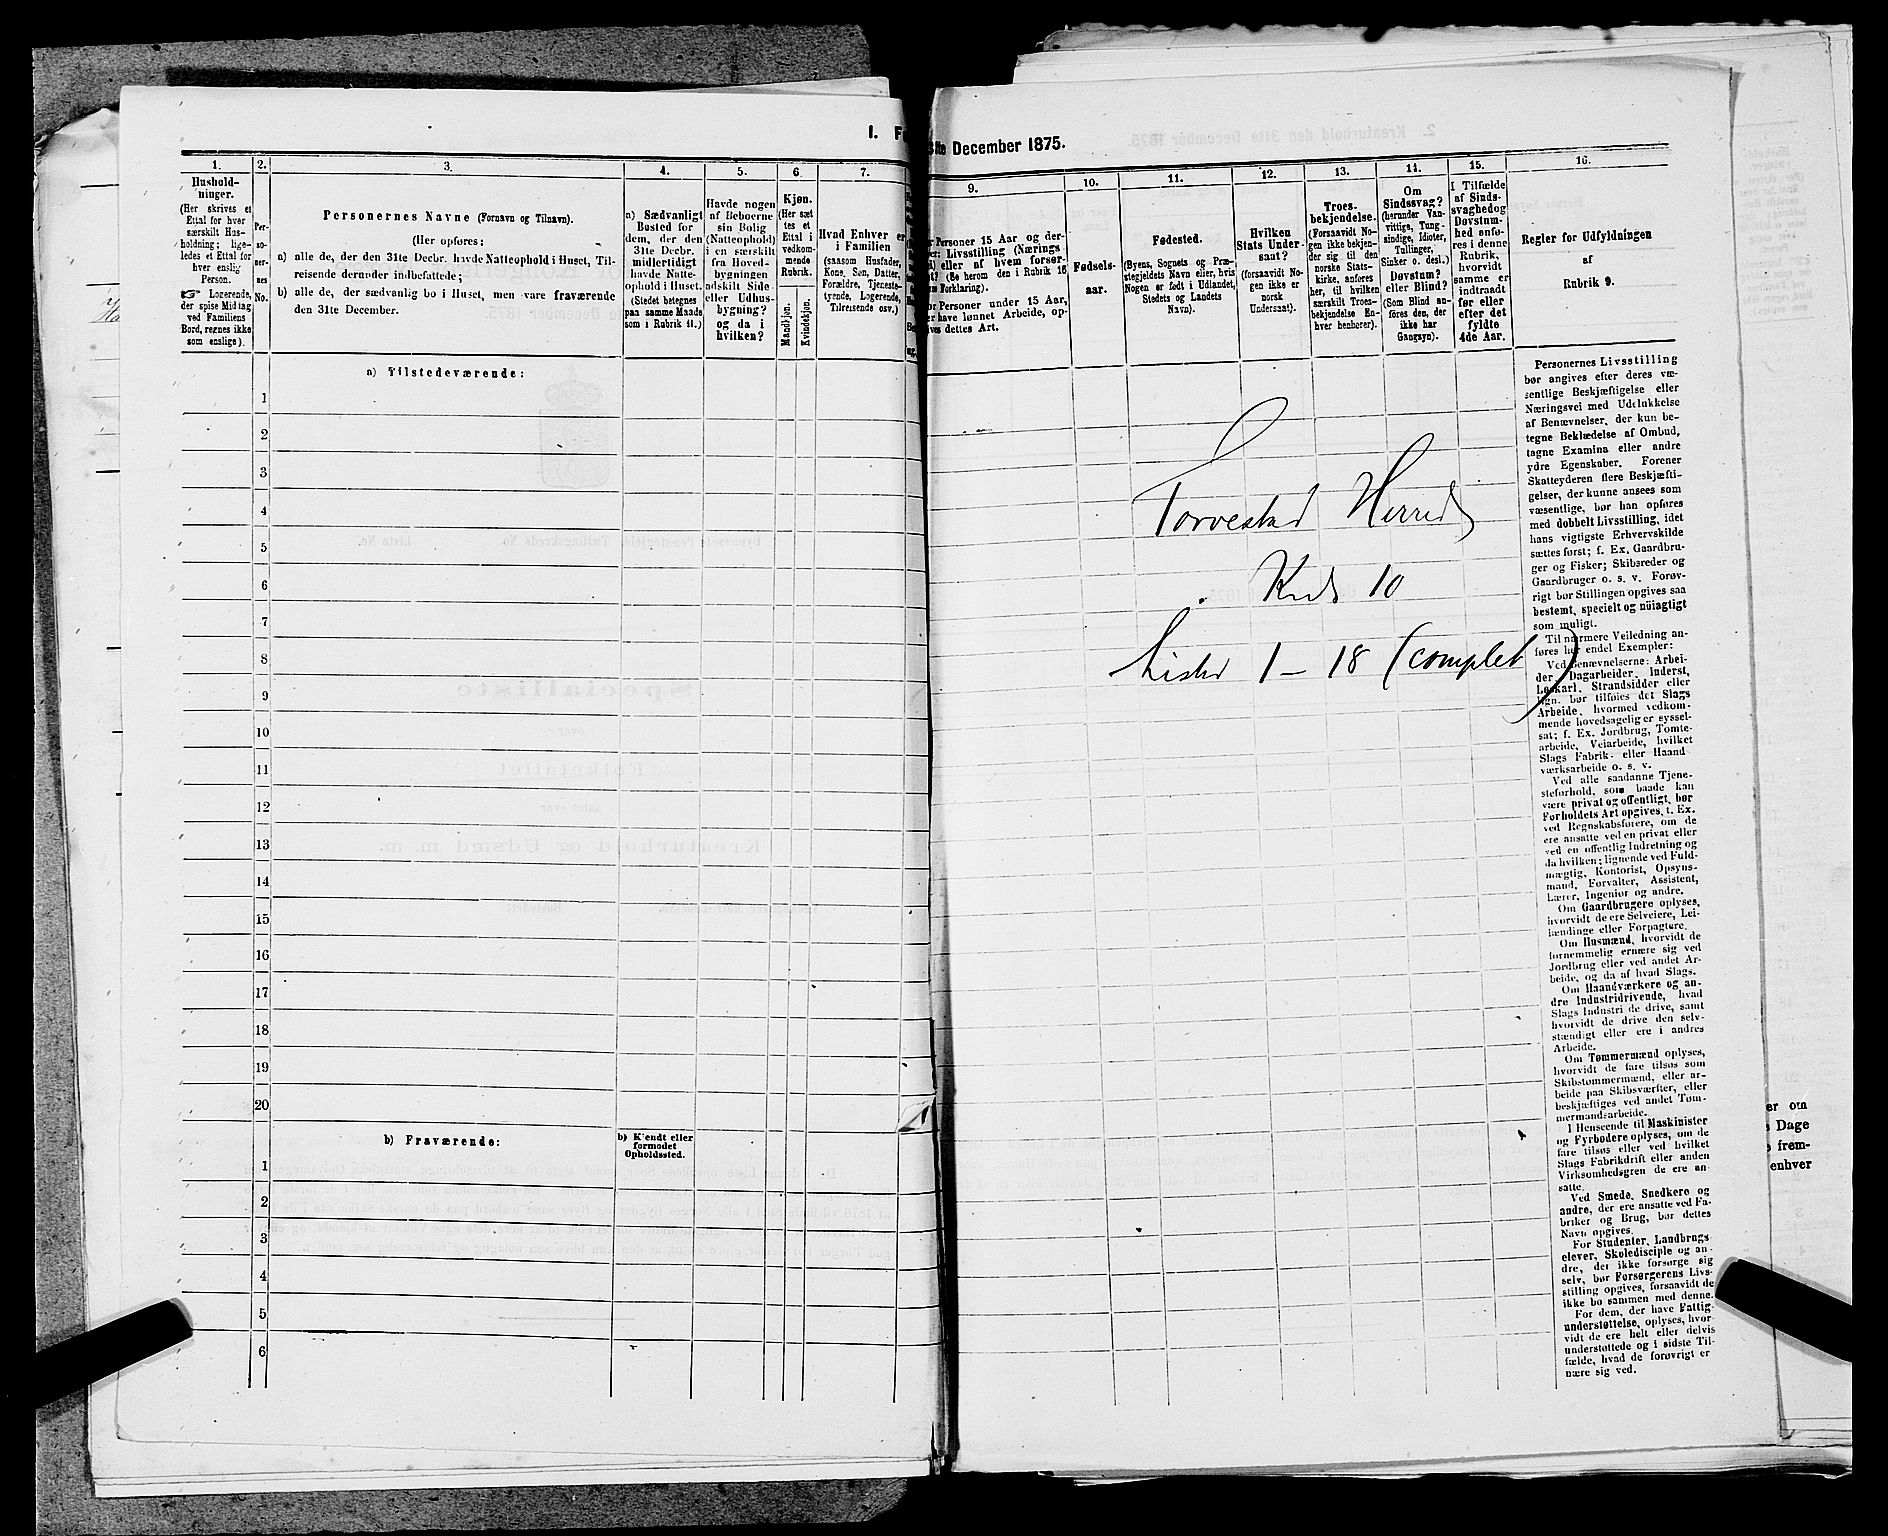 I. F
31te December 1875.
1.
2.
3.
4.
5.
6.
7.
9.
10.
11.
12.
13.
14.
15.
16.
Hushold-
ninger.
(Her skrives et
Ettal for hver
særskilt Hus-
holdning; lige-
ledes et Ettal for
hver enslig
Person.
☞ Logerende,
der spise Middag
ved Familiens
Bord, regnes ikke
som enslige).
Per-
so-
ner-
nes
No.
Personernes Navne (Fornavn og Tilnavn).
(Her opføres:
a) alle de, der den 31te Decbr. havde Natteophold i Huset, Til-
reisende derunder indbefattede;
b) alle de, der sædvanlig bo i Huset, men vare fraværende
den 31te December.
a) Sædvanligt
Bosted for
dem, der den
31te Decbr.
midlertidigt
havde Natte-
ophold i Huset.
(Stedet betegnes
paa samme Maade
som i Rubrik 11.)
Havde nogen
af Beboerne
sin Bolig
(Natteophold)
i en særskilt
fra Hoved-
bygningen
adskilt Side-
eller Udhus-
bygning?
og da i
hvilken?
Kjøn.
(Her sæt
tes et
Ettal i
vedkom-
mende
Rubrik.
Mandkjøn.
Kvindekjøn.
Hvad Enhver er
i Familien
(saasom Husfader,
Kone, Søn, Datter,
Forældre, Tjeneste-
tyende, Logerende,
Tilreisende osv.)
r Personer 15 Aar og der-
er: Livsstilling (Nærings
i) eller af hvem forsør-
t? (Se herom den i Rubrik 16
Forklaring).
or Personer under 15 Aar,
er have lønnet Arbeide, op-
ives dettes Art.
Fødsels-
aar.
Fødested.
(Byens, Sognets og Præ-
stegjeldets Navn eller, hvis
Nogen er født i Udlandet,
Stedets og Landets
Navn).
Hvilken
Stats Under-
saat?
(forsaavidt No-
gen ikke er
norsk
Undersaat).
Troes-
bekjendelse.
(Forsaavidt No-
gen ikke bekjen-
der sig til den
norske Stats-
kirke, anføres
her, til hvilken
særskilt Troes-
bekjendelse En-
hver henhører).
Om
Sindssvag?
(herunder Van-
vittige, Tung-
sindige, Idioter,
Tullinger,
Sinker o. desl.)
Døvstum?
eller Blind?
(Som Blind an-
føres den, der
ikke har
Gangsyn).
I Tilfælde
af Sinds-
svaghed og
Døvstum-
hed anfø-
res i denne
Rubrik,
hvorvidt
samme er
indtraadt
før eller
efter det
fyldte
4de Aar.
Regler for Udfyldningen
af
Rubrik 9.
a) Tilstedeværende:
1
2
3
4
5
6
7
8
9
10
11
12
13
14
15
16
17
18
19
20
b) Fraværende:
b) Kjendt eller
formodet
Opholdssted.
1
2
3
4
5
6
Torvestad Herred
Kreds 10
Lister 1 – 18 (complet)
Personernes Livsstilling
bør angives efter deres væ-
sentlige Beskjæftigelse eller
Næringsvei med Udelukkelse
af Benævnelser, der kun be-
tegne Beklædelse af Ombud,
tagne Examina eller andre
ydre Egenskaber. Forener
Skatteyderen flere Beskjæfti-
gelser, der kunne ansees som
væsentlige, bør han opføres
med dobbelt Livsstilling, idet
hans vigtigste Erhvervskilde
sættes først; f. Ex. Gaardbru-
ger og Fisker; Skibsreder og
Gaardbruger o. s. v. Forøv-
rigt bør Stillingen opgives saa
bestemt, specielt og nøiagtigt
som muligt.
Til nærmere Veiledning an-
føres her endel Exempler:
Ved Benævnelserne: Arbei-
der, Dagarbeider, Inderst,
Løskarl, Strandsidder eller
lign. bør tilføies det Slags
Arbeide, hvormed vedkom-
mende hovedsagelig er syssel-
sat; f. Ex. Jordbrug, Tomte-
arbeide, Veiarbeide, hvilket
Slags Fabrik- eller Haand
værksarbeide o. s. v.
Ved alle saadanne Tjene-
steforhold, som baade kan
være privat og offentligt, bør
Forholdets Art opgives, t. Ex.
ved Regnskabsførere, om de
ere ansatte ved en privat eller
ved en offentlig Indretning og
da hvilken; lignende ved Fuld-
mægtig, Kontorist, Opsyns-
mand, Forvalter, Assistent,
Lærer, Ingeniør og andre.
Om Gaardbrugere oplyses,
hvorvidt de ere Selveiere, Lei-
lændinge eller Forpagtere.
Om Husmænd, hvorvidt de
fornemmelig ernære sig ved
Jordbrug eller ved andet Ar-
beide, og da af hvad Slags.
Om Haandværkere og an-
dre Industridrivende, hvad
Slags Industri de drive, samt
hvorvidt de drive den selv-
stændigt eller ere i andres
Arbeide.
Om Tømmermænd oplyses,
hvorvidt de fare tilsøs som
Skibstømmermænd, eller ar-
beide paa Skibsværfter, eller
beskjæftiges ved andet Tøm-
mermandsarbeide.
I Henseende til Maskinister
og Fyrbødere oplyses, om de
fare tilsøs eller ved hvilket
Slags Fabrikdrift eller anden
Virksomhedsgren de ere an-
satte.
Ved Smede, Snedkere og
andre, der ere ansatte ved Fa-
briker og Brug, bør dettes
Navn opgives.
For Studenter, Landbrugs
elever, Skoledisciple og an-
dre, der ikke forsørge sig
selv, bør Forsørgerens Livs-
stilling opgives, forsaavidt de
ikke bo sammen med denne.
For dem, der have Fattig-
understøttelse, oplyses, hvor-
vidt de ere helt eller delvis
understøttede og i sidste Til-
fælde, hvad de forøvrigt er
nære sig ved.
er om
Dage
frem-
enhver